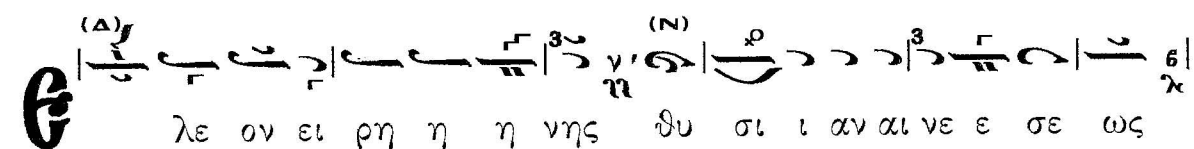 (Δ) (Ν)
3 3
Ε λε ον ει ρη η η νης θυ σι ι αν αι νε ε σε ως